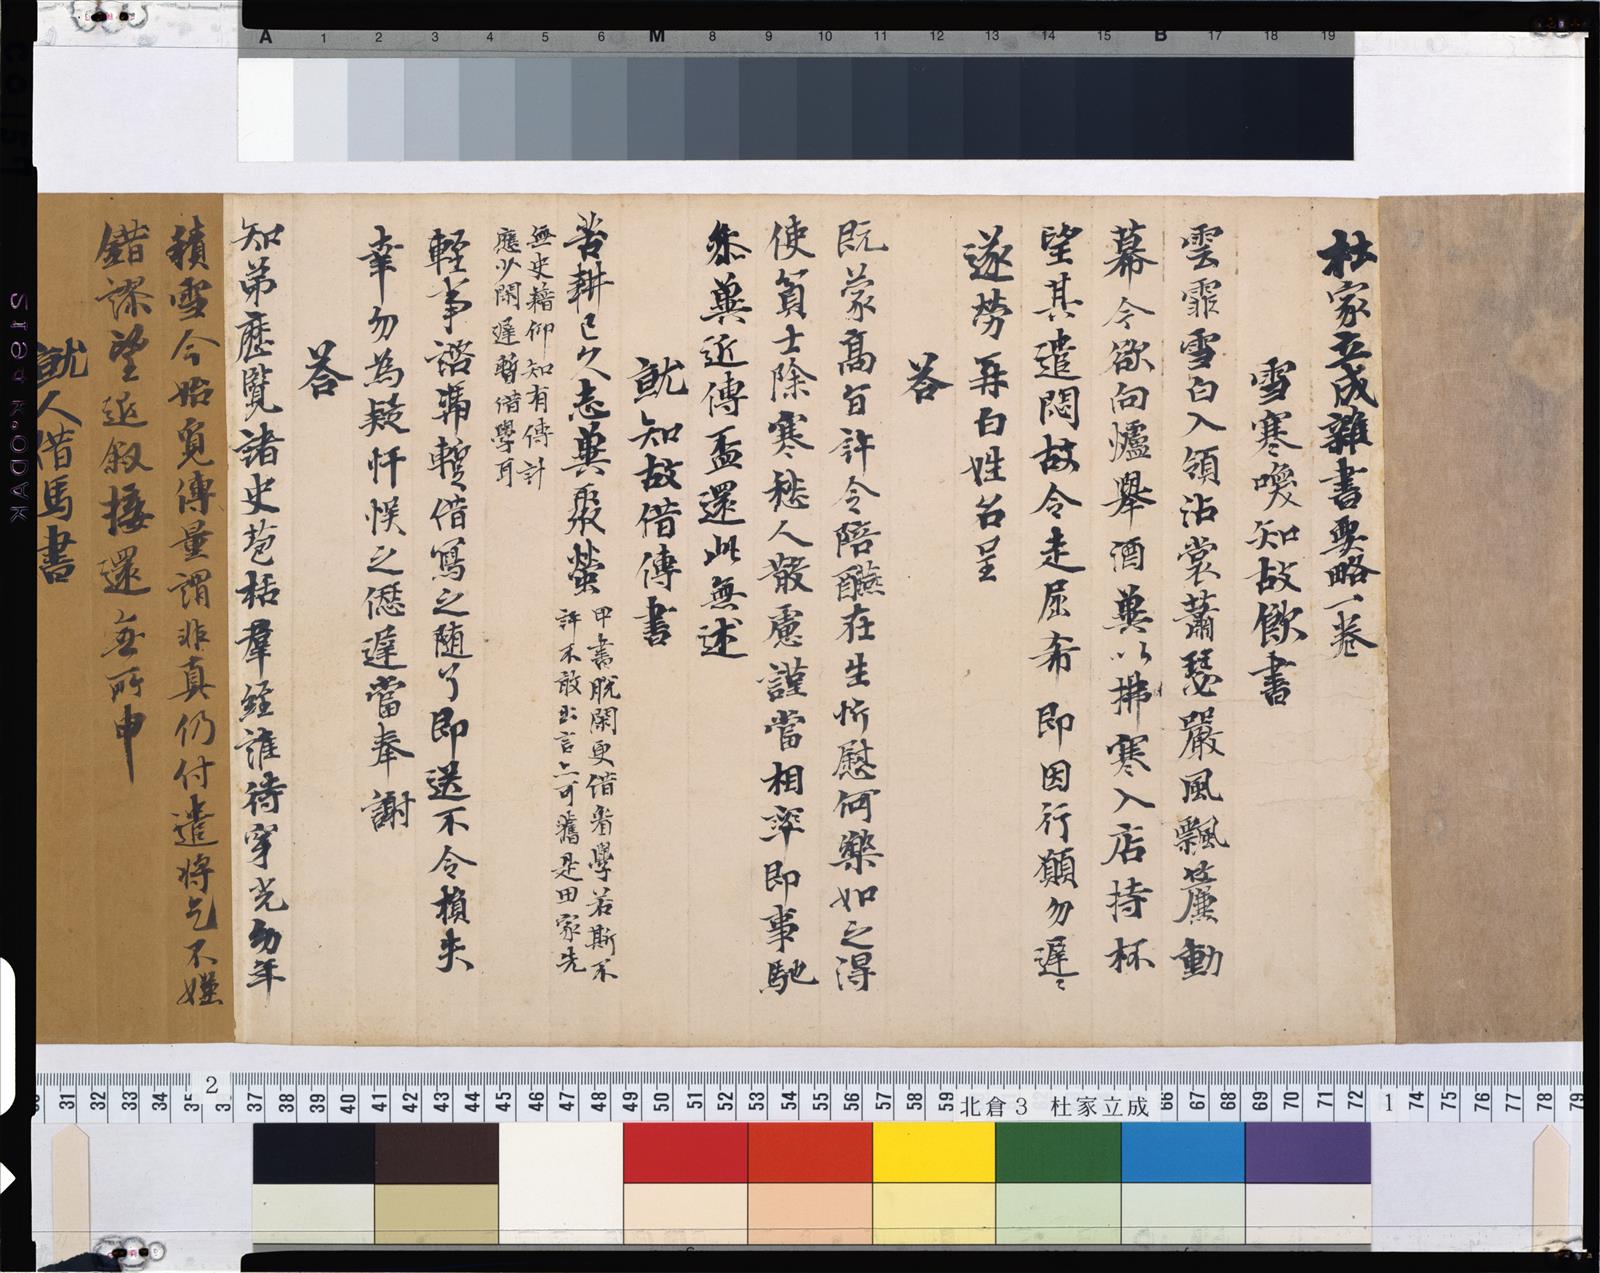 杜家立成雜書要略一卷
雪寒喚知故飲書
雲霏雪白入領沾裳蕭瑟嚴風飄簾動
幕今欲向爐舉酒冀以拂寒入店持杯
望其遣悶故令走屈希即因行願勿遲〻
遂勞再白姓名呈
答
既蒙高旨許令陪醼在生忻慰何樂如之淂
使貧士除寒愁人散慮謹當相率即事馳
叅冀近傳盃還此無述
就知故借傳書
苦耕已久志冀聚螢
甲書脫閑更借看學若斯不
許不敢出言亦可舊是田家先
無史籍仰知有傳計
應少閑遲暫借學耳
輕事諮歸暫借寫之随了即送不令損失
幸勿為疑忤悮之僁遲當奉謝
答
知弟歷覽諸史苞栝羣經誰待穿光勿年
積雪今始覓傳量謂非真仍付遣將乞不嫌
錯謬望近敘接還無所申
就人借馬書
A 1 2 3 4 5 6 M 8 9 10 11 12 13 14 15 B 17 18 19
2
31 32 33 34 35 37 38 39 40 41 42 43 44 45 46 47 48 49 50 51 52 53 54 55 56 57 58 59 66 67 68 69 70 71 72 74 75 76 77 78 79
北倉3 杜家立成
1